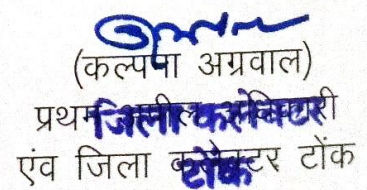 (कल्पना अग्रवाल)
प्रथम अपील अधिकारी
एंव जिला कलेक्टर टोंक
जिला कलेक्टर
टोंक